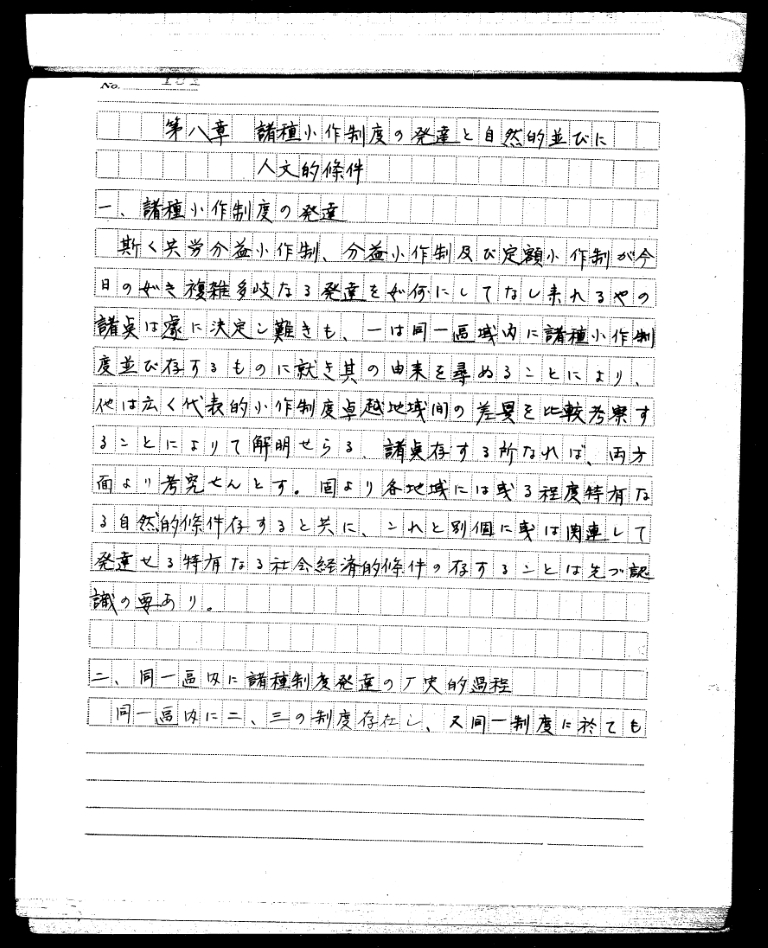 No. 102
第八章 諸種小作制度の発達と自然的並びに
人文的條件
一、諸種小作制度の発達
斯く共労分益小作制、分益小作制及び定額小作制が今
日の如き複雑多岐なる発達を如何にしてなし来れるやの
諸点は遽に決定し難きも、一は同一區域内に諸種小作制
度並び存するものに就き其の由来を尋ぬることにより、
他は広く代表的小作制度卓越地域間の差異を比較考察す
ることによりて解明せらる、諸点存する所なれば、両方
面より考究せんとす。固より各地域には或る程度特有な
る自然的條件存すると共に、これと別個に或は関連して
発達せる特有なる社会経済的條件の存することは先づ認
識の要あり。
二、同一區内に諸種制度発達の厂史的過程
同一區内に二、三の制度存在し、又同一制度に於ても